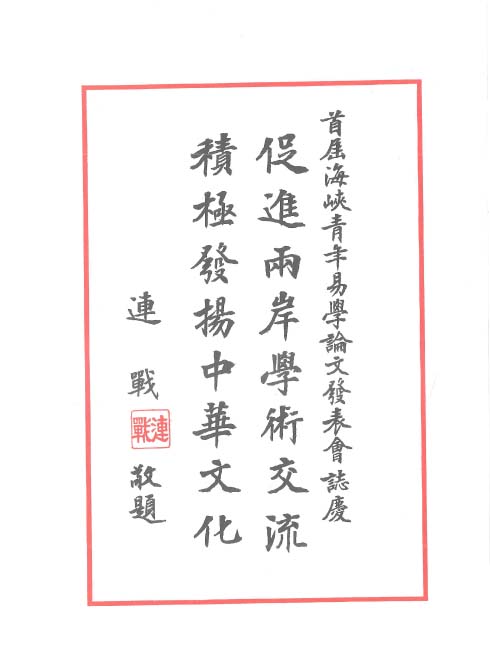 首屆海峽青年易學論文發表會誌慶
促進兩岸學術交流
積極發揚中華文化
連戰
連戰
敬題